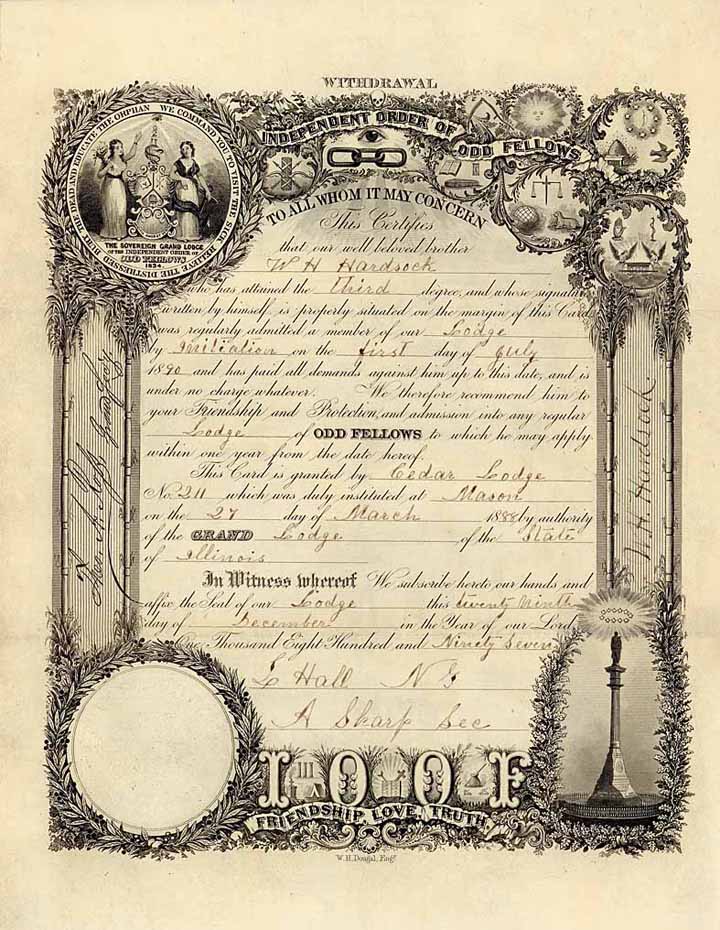 WITHDRAWAL
INDEPENDENT ORDER OF ODD FELLOWS
WE COMMAND YOU TO VISIT THE SICK RELIEVE THE DISTRESSED BURY THE DEAD AND EDUCATE THE ORPHAN
THE SOVEREIGN GRAND LODGE
OF THE INDEPENDENT ORDER OF
ODD FELLOWS
1834
TO ALL WHOM IT MAY CONCERN
This Certifies
that our well beloved brother
W H Hardsock
who has attained the third degree, and whose signature
written by himself, is properly situated on the margin of this Card
was regularly admitted a member of our Lodge
by Initiation on the first day of July
1890 and has paid all demands against him up to this date, and is
under no charge whatever. We therefore recommend him to
your Friendship and Protection, and admission into any regular
Lodge of ODD FELLOWS to which he may apply
within one year from the date hereof.
This Card is granted by Cedar Lodge
No. 211 which was duly instituted at Mason
on the 27 day of March 1888 by authority
of the GRAND Lodge of the State
of Illinois
In Witness whereof We subscribe hereto our hands and
affix the Seal of our Lodge this twenty Ninth
day of December in the Year of our Lord
One Thousand Eight Hundred and Ninety Seven
L Hall N G
A Sharp Sec
W. H. Hardsock
I O O F
FRIENDSHIP, LOVE, TRUTH
W.H. Dougal, Engr.